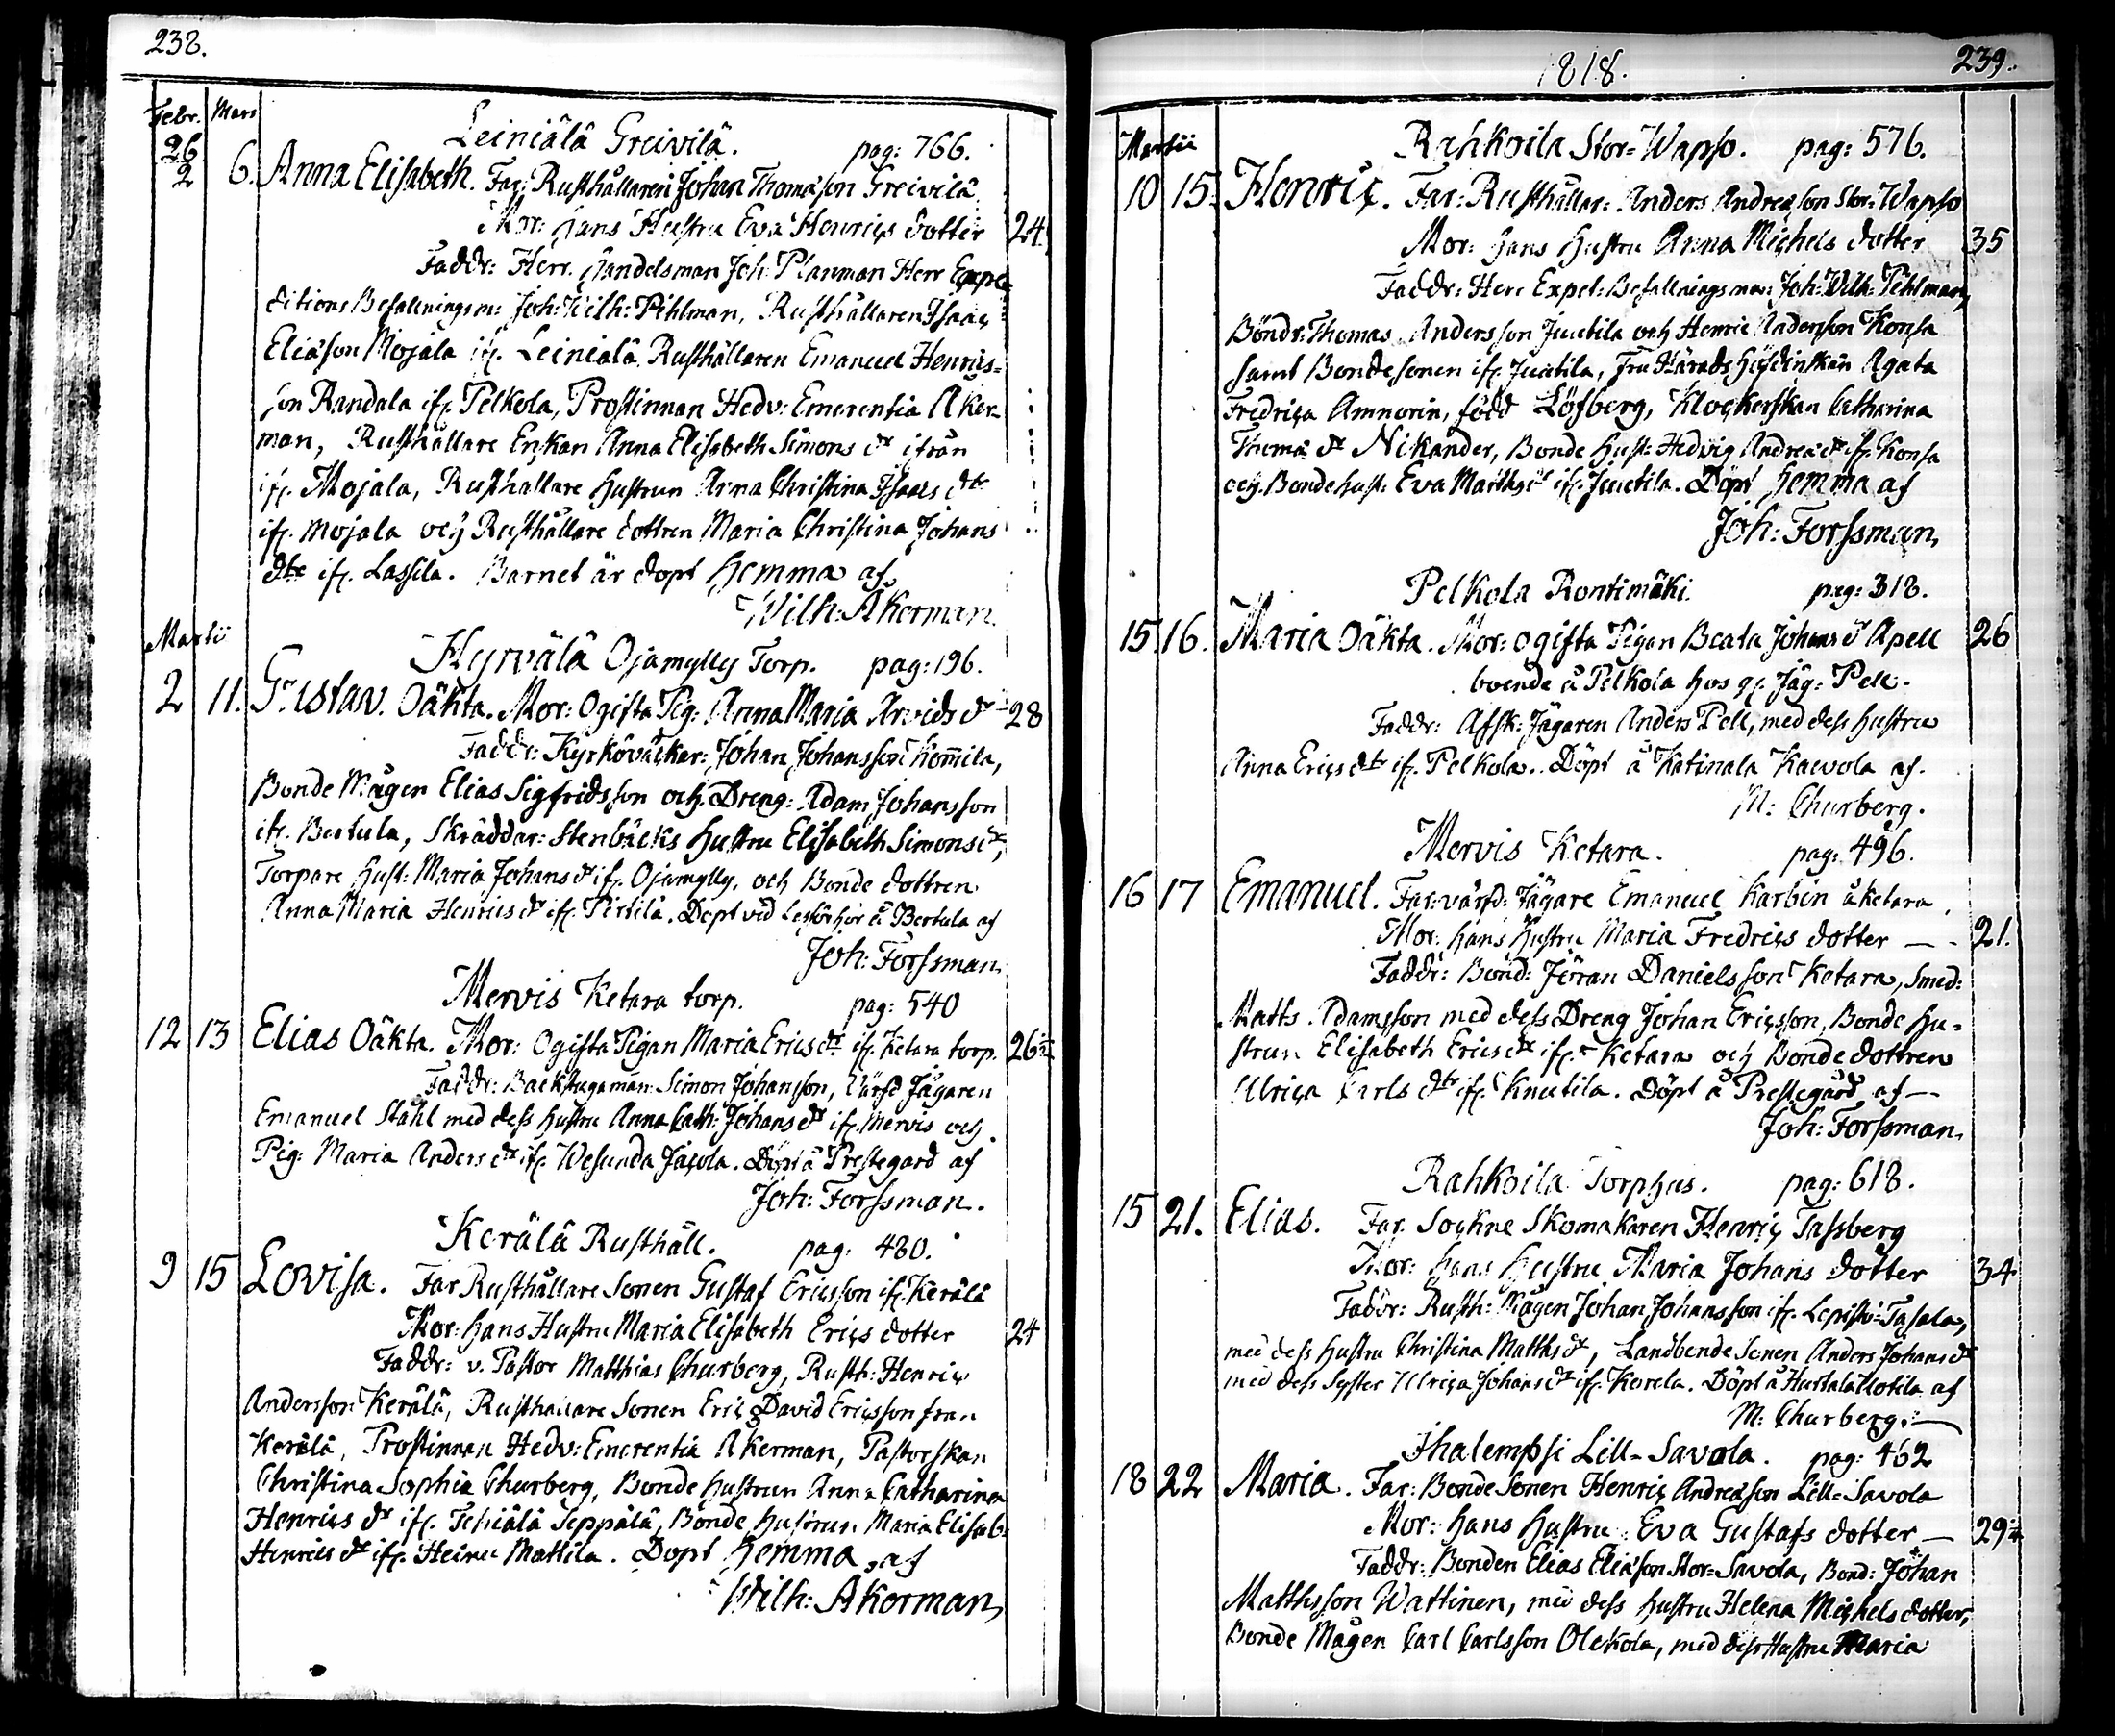 238.
Febr. Mars
Leiniälä Greivilä. pag: 766.
26
2 6. Anna Elisabeth. Far: Rusthållaren Johan Thomasson Greivilä
Mor: hans Hustru Eva Henrics dotter 24
Faddr: Herr. Handelsman Joh: Planman Herr Expe-
ditions Befallningsm: Joh: Wilh: Pihlman, Rusthållaren Isaac
Eliäson Mojala if. Leiniälä Rusthållaren Emanuel Henrics-
son Randala if. Pelkola, Prostinnan Hedv: Emerentia Åker-
man, Rusthållare Enkan Anna Elisabeth Simons dr ifrån
if. Mojala, Rusthållare Hustrun Anna Christina Isaacs dtr
if. Mojala och Rusthållare dottren Maria Christina Johans
dtr if. Lassila. Barnet är döpt hemma af
Wilh: Åkerman.
Martii
Hyrvälä Ojamylly Torp. pag: 196.
2 11. Gustav. Oäkta. Mor: Ogifta Pig: Anna Maria Arvids dr 28
Faddr: Kyrkoväcktar: Johan Johansson Komila,
Bonde Mågen Elias Sigfridsson och Dreng: Adam Johansson
if. Bertula, Skräddar: Stenbäcks Hustru Elisabeth Simons dr,
Torpare Hust: Maria Johans dr if. Ojamylly, och Bonde dottren
Anna Maria Henrics dr if. Pertilä. Döpt vid Läsförhör å Bertula af
Joh: Forssman.
Mervis Ketara torp. pag: 540
12 13 Elias Oäkta. Mor: Ogifta Pigan Maria Erics dr if. Ketara torp. 26
Faddr: Backstuguman Simon Johansson, Värfd Jägaren
Emanuel Stähl med dess Hustru Anna Cath: Johans dr if. Mervis och
Pig: Maria Anders dr if. Wesunda Jacola. Döpt å Prestegård af
Joh: Forssman.
Kerälä Rusthåll. pag: 480.
9 15 Lovisa. Far Rusthållare Sonen Gustaf Ericsson if. Kerälä
Mor: hans Hustru Maria Elisabeth Erics dotter 24
Faddr: v. Pastor Matthias Churberg, Rusth: Henric
Andersson Kerälä, Rusthållare Sonen Eric David Ericsson från
Kerälä, Prostinnan Hedv: Emerentia Åkerman, Pastorskan
Christina Sophia Churberg, Bonde Hustrun Anna Catharina
Henrics dr if. Teniälä Seppälä, Bonde hustrun Maria Elisab:
Henrics dr if. Heinu Mattila. Döpt hemma af
Wilh: Åkerman,
1818. 239.
Martii
Rahkoila Stor-Wapso. pag: 576.
10 15. Henric. Far: Rusthållar: Anders Andreason Stor-Wapso
Mor: hans Hustru Anna Michels dotter 35
Faddr: Herr Expet: Befallningsman: Joh: Wilh: Pihlman,
Böndr: Thomas Andersson Juutila och Henric Andersson Konsa
samt Bondesonen if. Juutila, Fru Härads Höfdinskan Agata
Fredrica Amnorin, född Löfberg, Klockerskan Catharina
Thomä dr Nikander, Bonde Hust: Hedvig Andreä dr if. Konsa
och Bonde hust: Eva Matths dr if. Juutila. Döpt hemma af
Joh: Forssman,
Pelkola Rontimäki. pag: 318.
15 16. Maria Oäkta. Mor: ogifta Pigan Beata Johans dr Apell 26
boende å Pelkola hos Jäg: Pell.
Faddr: Afsk: Jägaren Anders Pell, med dess hustru
Anna Erics dtr if. Pelkola. Döpt å Katinala Kaevola af.
M: Churberg.
Mervis Ketara. pag: 496.
16 17 Emanuel. Far: värfd: Jägare Emanuel Karbin å Ketara.
Mor: hans Hustru Maria Fredrics dotter — 21.
Faddr: Bond: Jöran Danielsson Ketara, Smed:
Matts Adamsson med dess Dreng Johan Ericsson, Bonde Hu-
strun Elisabeth Erics dr if. Ketara och Bonde dottren
Ulrica Carls dtr if. Knutila. Döpt å Prestegård af —
Joh: Forssman.
Rahkoila Torphus. pag: 618.
15 21. Elias. Far Sockne Skomakaren Henric Tassberg
Mor: hans Hustru Maria Johans dotter 34
Faddr: Rusth: Mågen Johan Johansson if. Lepistö-Tasala,
med dess hustru Christina Matths dr, Landbonde Sonen Anders Johans
med dess Syster Ulrica Johans dr if. Korela. Döpt å Hurtala Ilotila af
M: Churberg. —
Ihalempsi Lill-Savola. pag: 462
18 22 Maria. Far: Bonde Sonen Henric Andreason Lill-Savola
Mor: hans Hustru Eva Gustafs dotter — 29
Faddr: Bonden Elias Eliäson Stor-Savola, Bond: Johan
Matthsson Wattinen, med dess Hustru Helena Michels dotter,
Bonde Mågen Carl Carlsson Olckola, med dess Hustru Maria